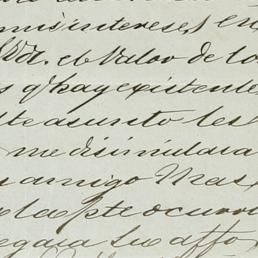 mis intereses en
Vd. el Valor de lo
s q. hay existente
te asunto les
me disimulara
amigo Mas
la pte ocurr
egaia Su affo